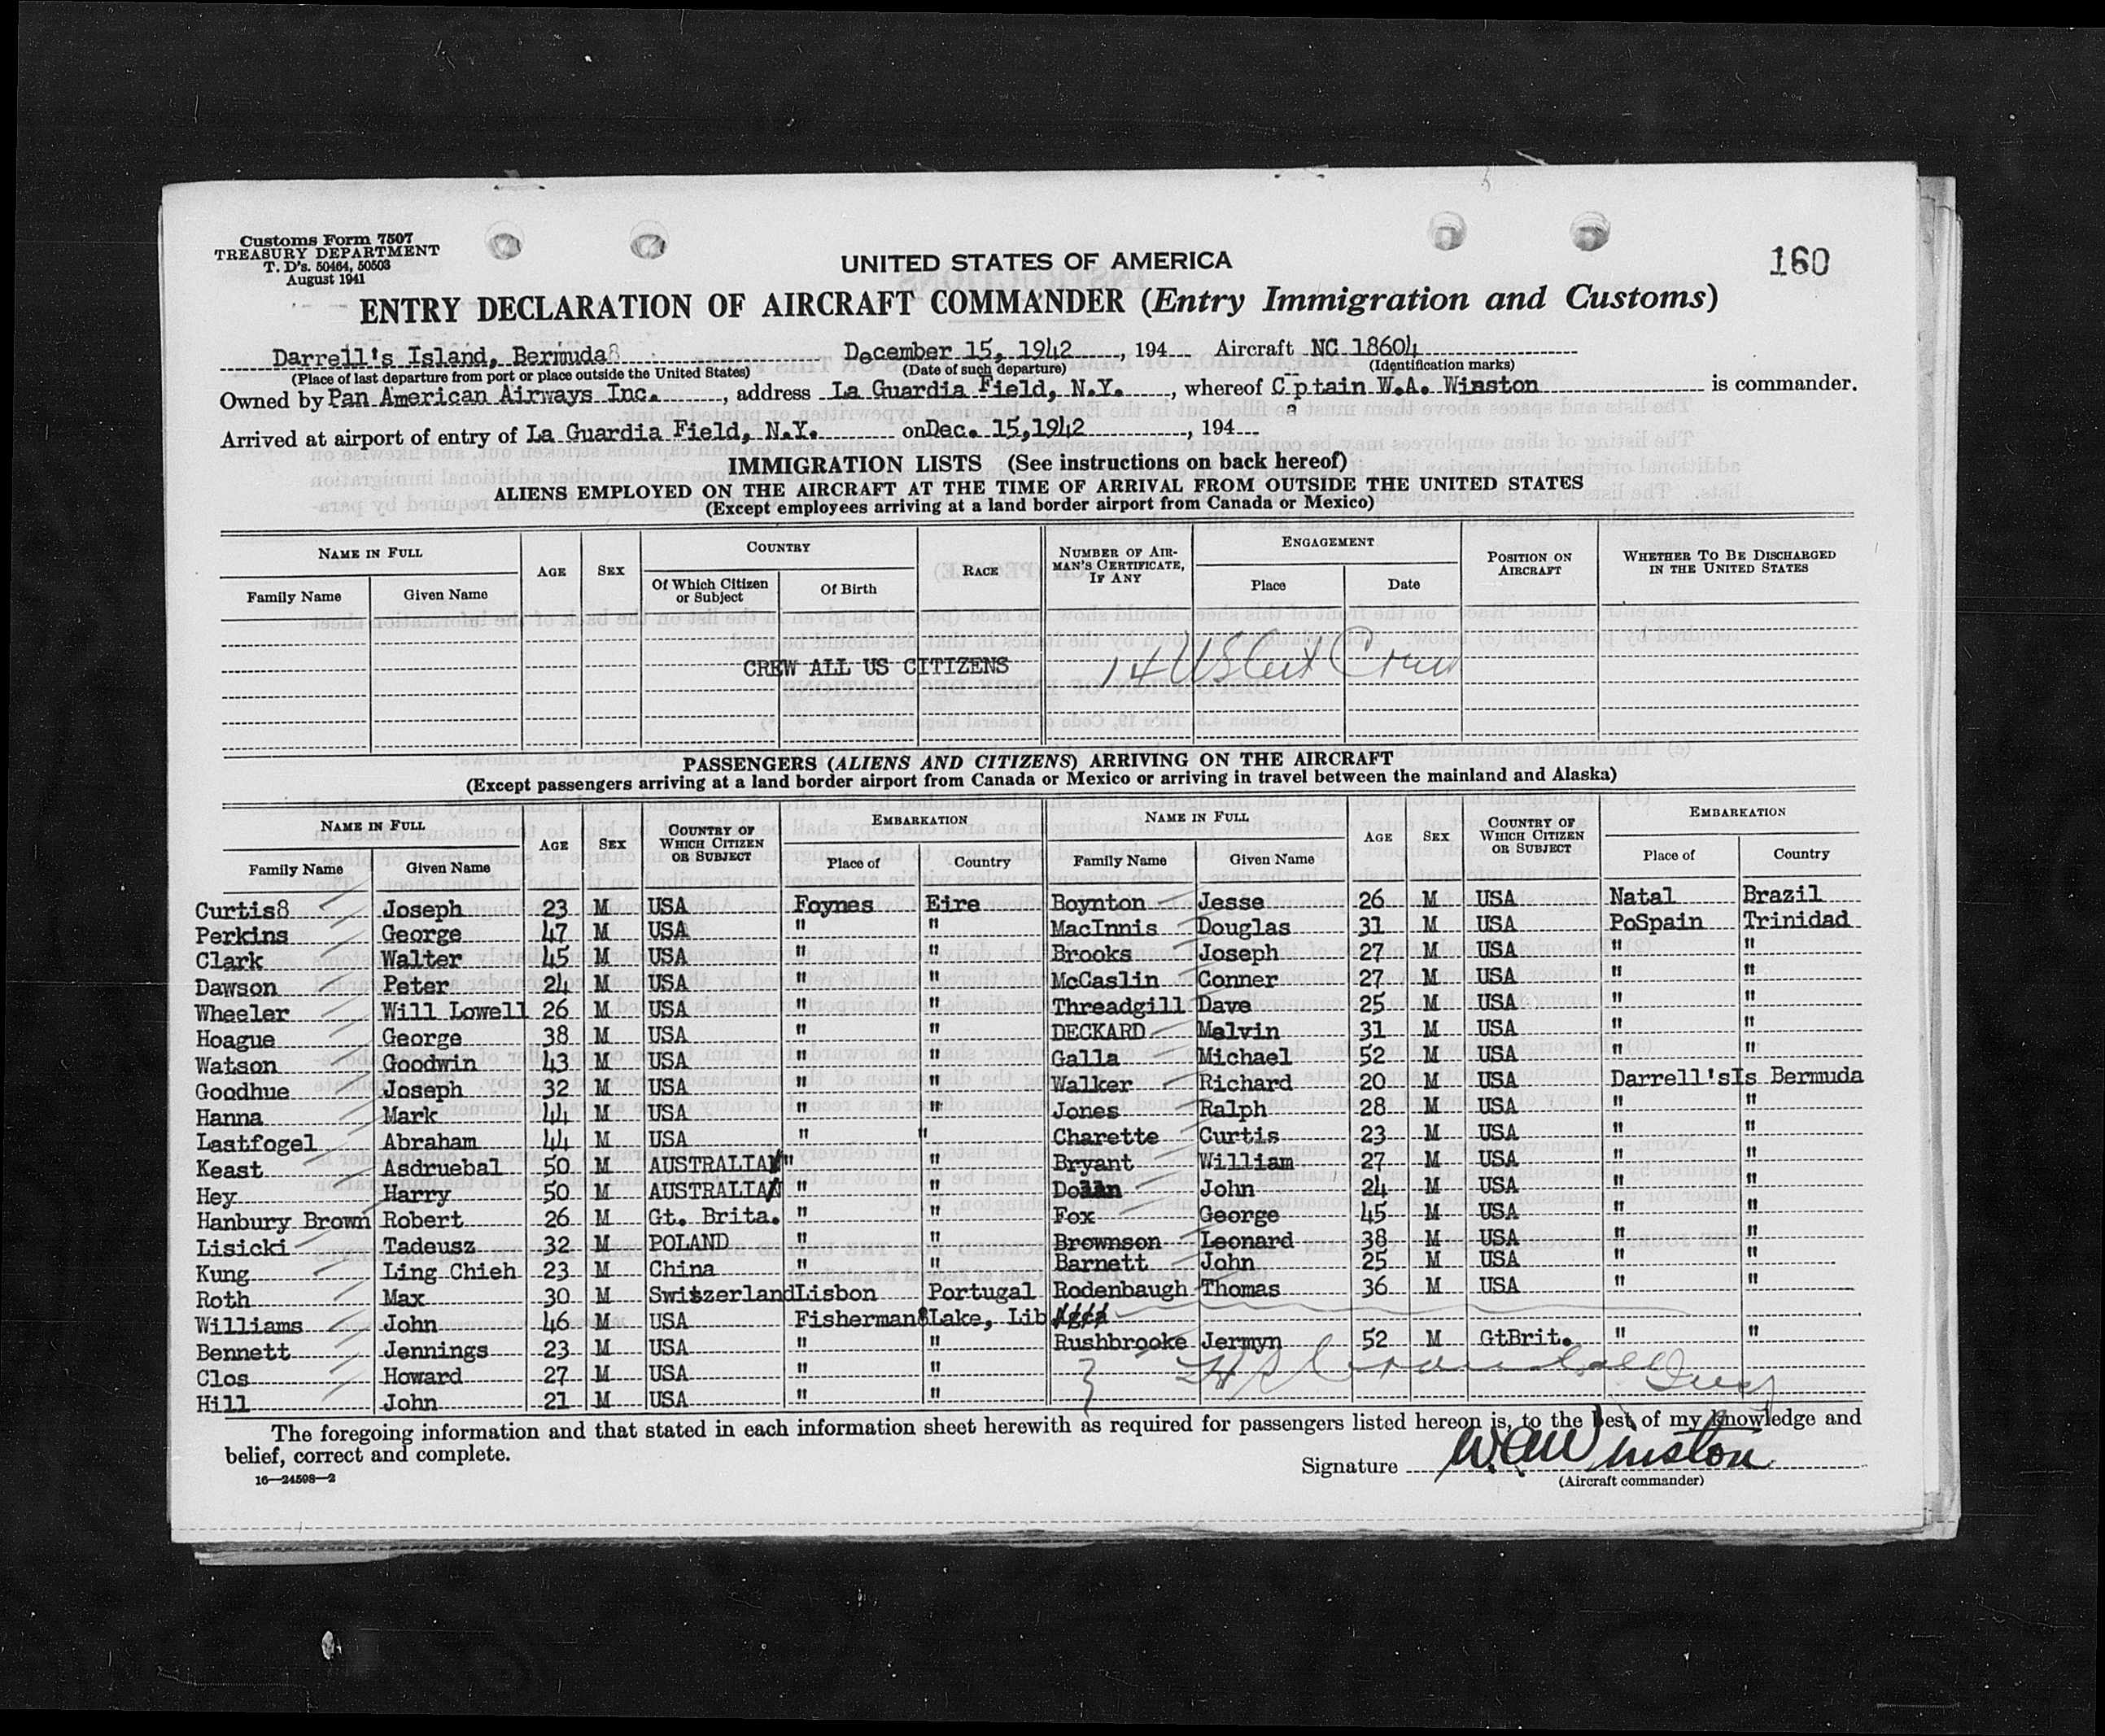 Customs Form 7507
TREASURY DEPARTMENT
T. D's. 50464, 50503
August 1941
160
UNITED STATES OF AMERICA
ENTRY DECLARATION OF AIRCRAFT COMMANDER (Entry Immigration and Customs)
Darrell's Island, Bermuda8 December 15, 1942, 194 Aircraft NC 18604
(Place of last departure from port or place outside the United States) (Date of such departure) (Identification marks)
Owned by Pan American Airways Inc., address La Guardia Field, N.Y., whereof Captain W.A. Winston is commander.
Arrived at airport of entry of La Guardia Field, N.Y. on Dec. 15, 1942, 194
IMMIGRATION LISTS (See instructions on back hereof)
ALIENS EMPLOYED ON THE AIRCRAFT AT THE TIME OF ARRIVAL FROM OUTSIDE THE UNITED STATES
(Except employees arriving at a land border airport from Canada or Mexico)
NAME IN FULL AGE SEX COUNTRY RACE NUMBER OF AIRMAN'S CERTIFICATE, IF ANY ENGAGEMENT POSITION ON AIRCRAFT WHETHER TO BE DISCHARGED IN THE UNITED STATES
Family Name Given Name Of Which Citizen or Subject Of Birth Place Date
CREW ALL US CITIZENS 14 US Cit Crew
PASSENGERS (ALIENS AND CITIZENS) ARRIVING ON THE AIRCRAFT
(Except passengers arriving at a land border airport from Canada or Mexico or arriving in travel between the mainland and Alaska)
NAME IN FULL AGE SEX COUNTRY OF WHICH CITIZEN OR SUBJECT EMBARKATION NAME IN FULL AGE SEX COUNTRY OF WHICH CITIZEN OR SUBJECT EMBARKATION
Family Name Given Name Place of Country Family Name Given Name Place of Country
Curtis8 Joseph 23 M USA Foynes Eire Boynton Jesse 26 M USA Natal Brazil
Perkins George 47 M USA " " MacInnis Douglas 31 M USA PoSpain Trinidad
Clark Walter 45 M USA " " Brooks Joseph 27 M USA " "
Dawson Peter 24 M USA " " McCaslin Conner 27 M USA " "
Wheeler Will Lowell 26 M USA " " Threadgill Dave 25 M USA " "
Hoague George 38 M USA " " DECKARD Melvin 31 M USA " "
Watson Goodwin 43 M USA " " Galla Michael 52 M USA " "
Goodhue Joseph 32 M USA " " Walker Richard 20 M USA Darrell'sIs Bermuda
Hanna Mark 44 M USA " " Jones Ralph 28 M USA " "
Lastfogel Abraham 44 M USA " " Charette Curtis 23 M USA " "
Keast Asdruebal 50 M AUSTRALIA " " Bryant William 27 M USA " "
Hey Harry 50 M AUSTRALIA " " Dolan John 24 M USA " "
Hanbury Brown Robert 26 M Gt. Brita. " " Fox George 45 M USA " "
Lisicki Tadeusz 32 M POLAND " " Brownson Leonard 38 M USA " "
Kung Ling Chieh 23 M China " " Barnett John 25 M USA " "
Roth Max 30 M Switzerland Lisbon Portugal Rodenbaugh Thomas 36 M USA " "
Williams John 46 M USA Fisherman8Lake, Lib
Bennett Jennings 23 M USA " " Rushbrooke Jermyn 52 M GtBrit. " "
Clos Howard 27 M USA " "
Hill John 21 M USA " "
The foregoing information and that stated in each information sheet herewith as required for passengers listed hereon is, to the best of my knowledge and
belief, correct and complete.
16—24598—2
Signature W.A. Winston
(Aircraft commander)